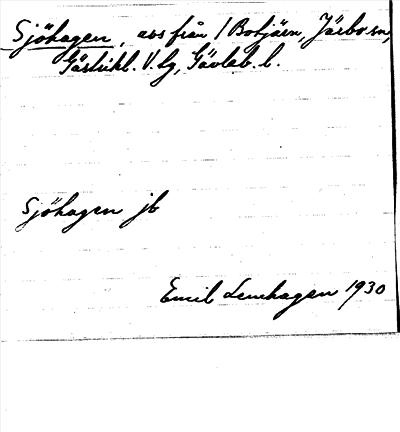 Sjöhagen, avs från 1 Botjärn, Järbo sn,
Gästrikl. V. lg, Gävleb. l.
Sjöhagen jb
Emil Lenhagen 1930